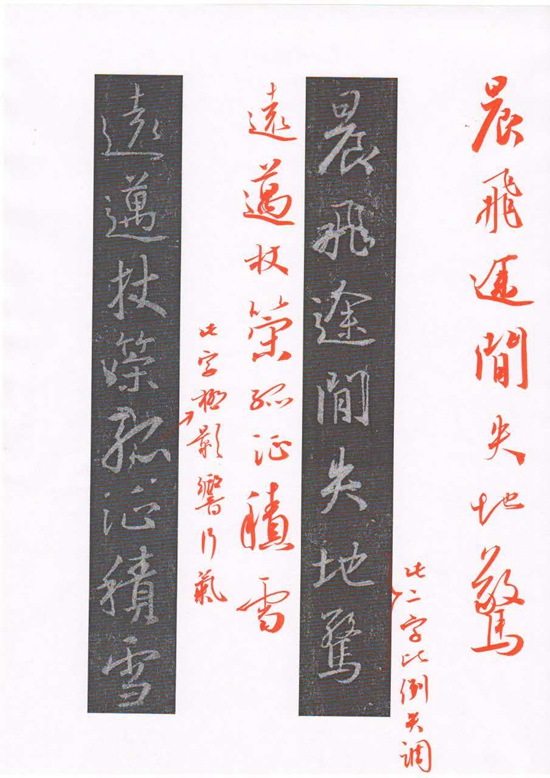 晨飛途間失地驚
此二字比例失調
晨飛途間失地驚
遠邁杖策孤征積雪
此字極影響行氣
遠邁杖策孤征積雪